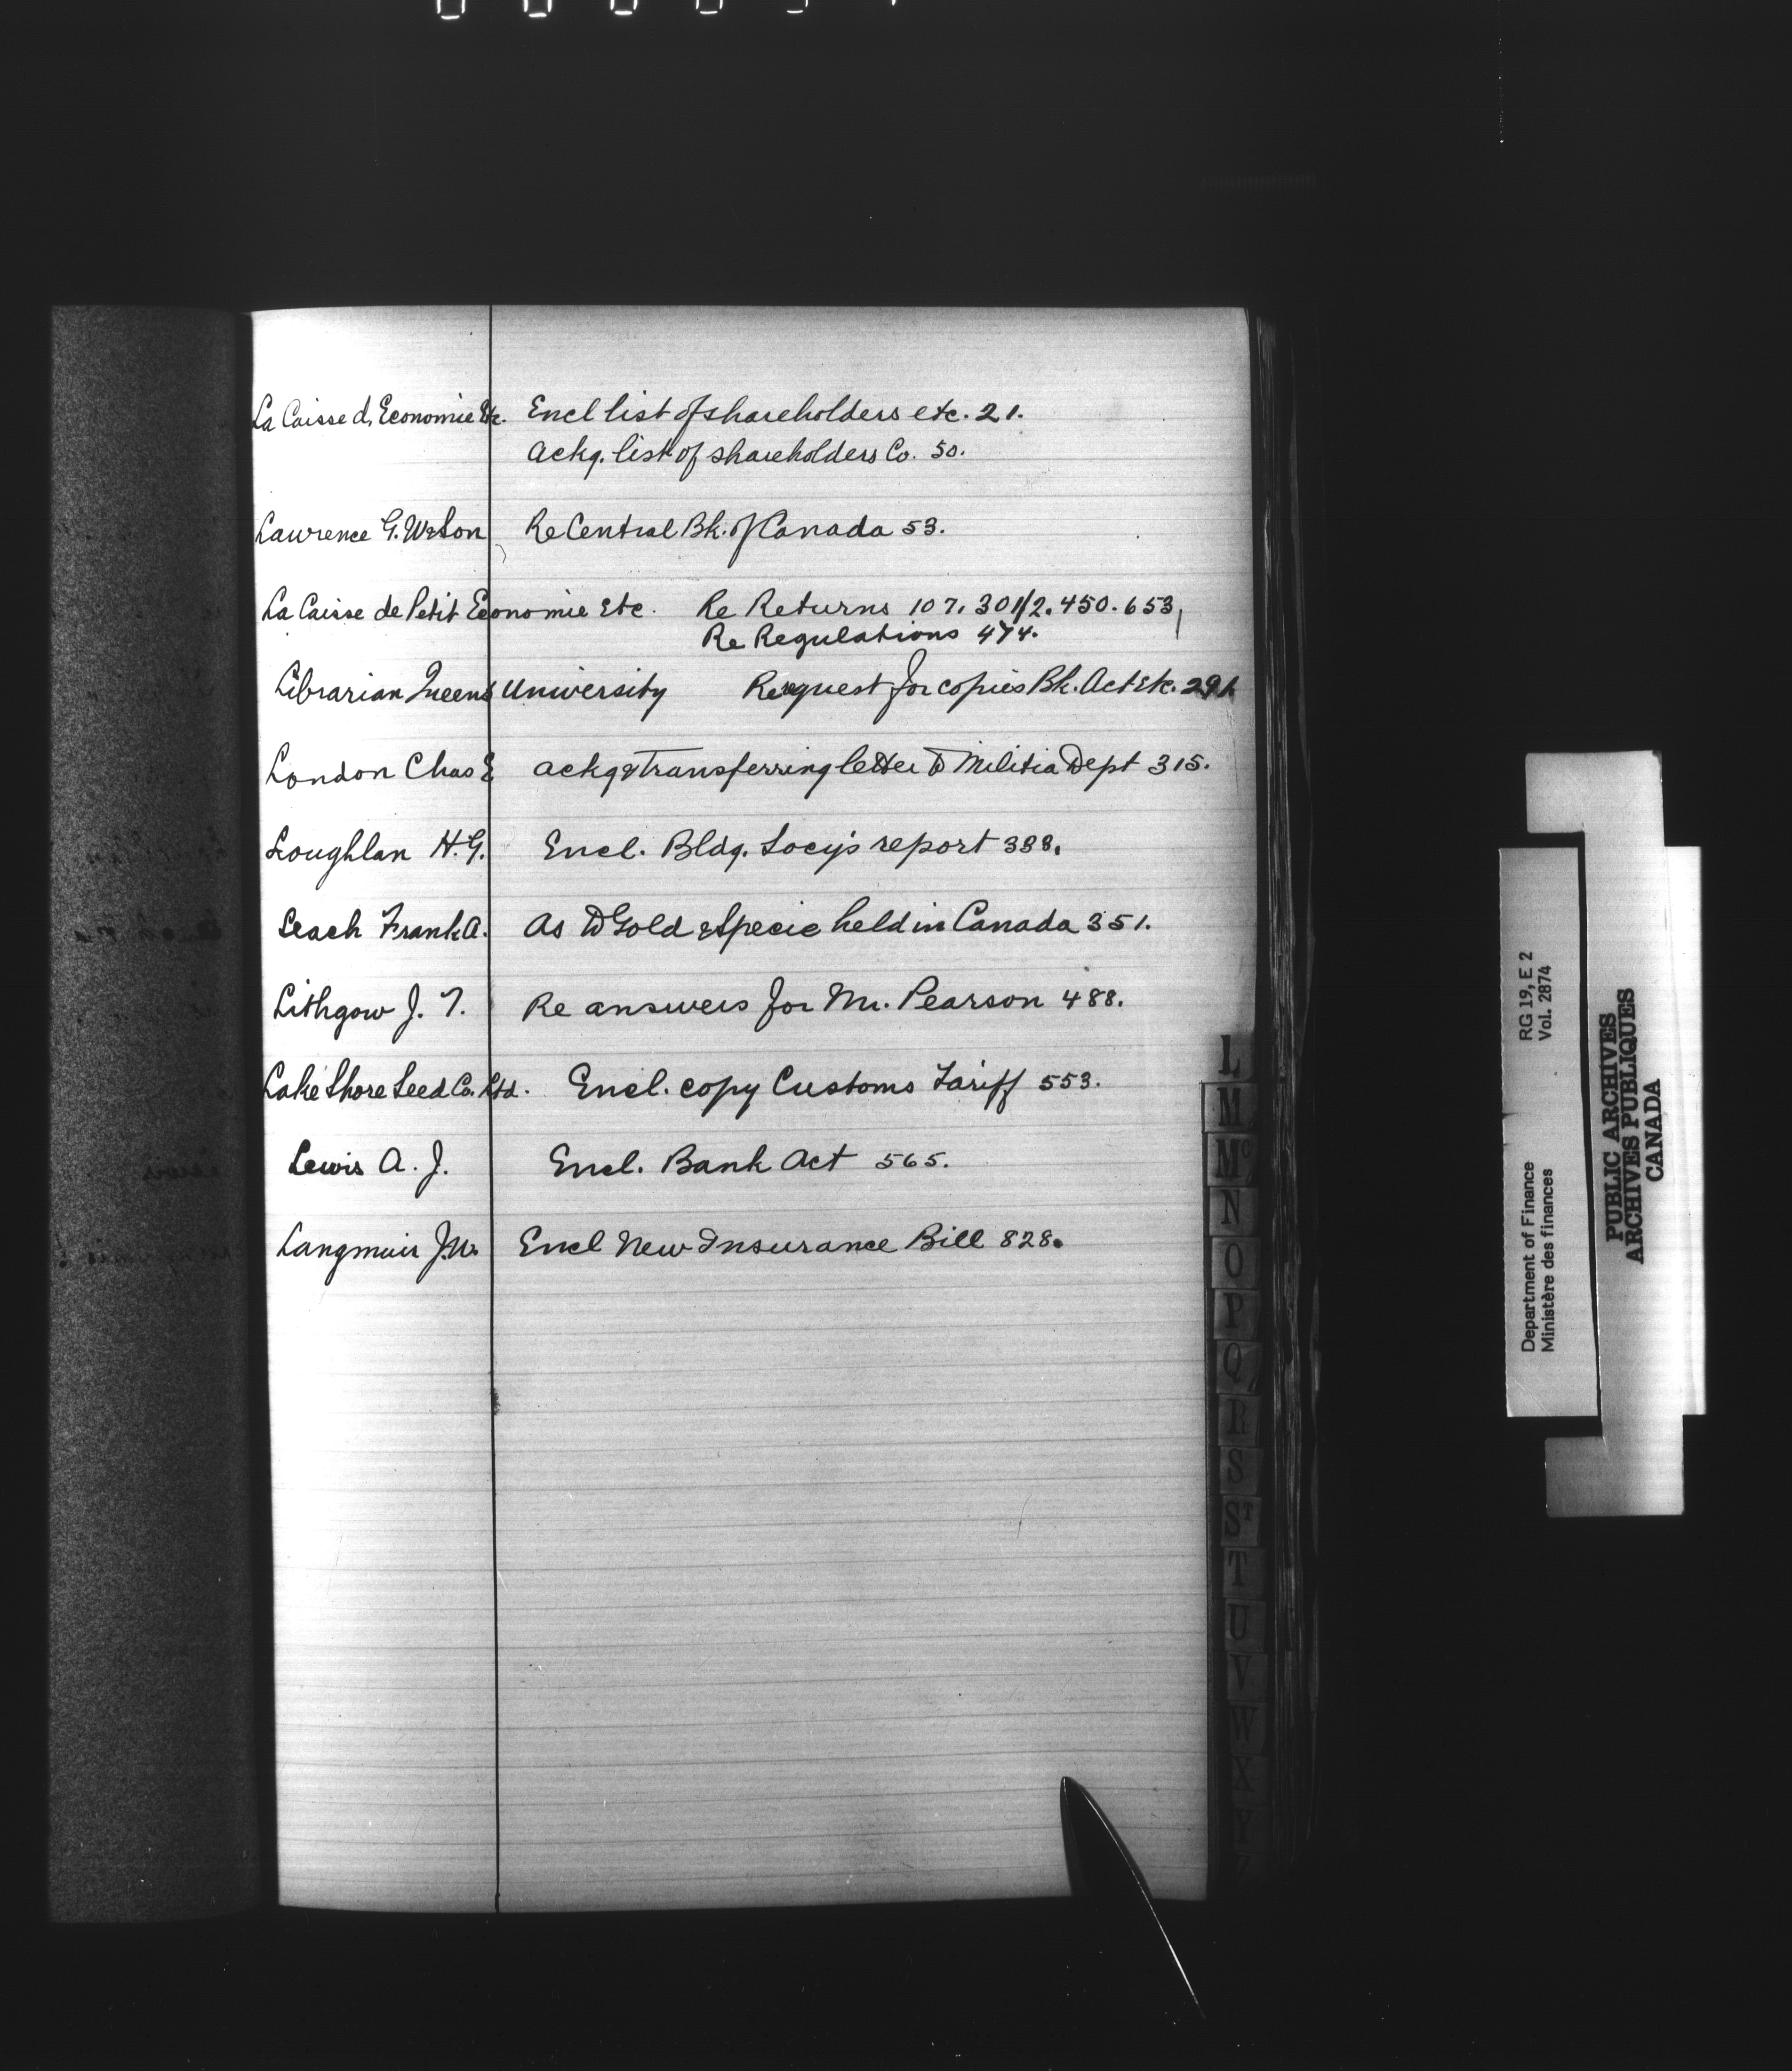 La Caisse d, Economie Etc. Encl list of shareholders etc. 21.
ackg. list of shareholders Co. 50.
Lawrence G. Watson Re Central Bk. of Canada 53.
La Caisse de Petit Economie Etc. Re Returns 107. 301/2. 450. 653,
Re Regulations 474.
Librarian Queens University Request for copies Bk. Act Etc. 291.
London Chas E ackg & Transferring letter to Militia Dept 315.
Loughlan H. G. Encl. Bldg. Socy's report 388.
Leach Frank A. As to Gold & Specie held in Canada 351.
Lithgow J. T. Re answers for Mr. Pearson 488.
Lake Shore Seed Co. Ltd. Encl. copy Customs Tariff 553.
Lewis A. J. Encl. Bank Act 565.
Langmuir J. W. Encl New Insurance Bill 828.
L
M
Mc
N
O
P
Q
R
S
ST
T
U
V
W
X
Y
Department of Finance RG 19, E 2
Ministère des finances Vol. 2874
PUBLIC ARCHIVES
ARCHIVES PUBLIQUES
CANADA